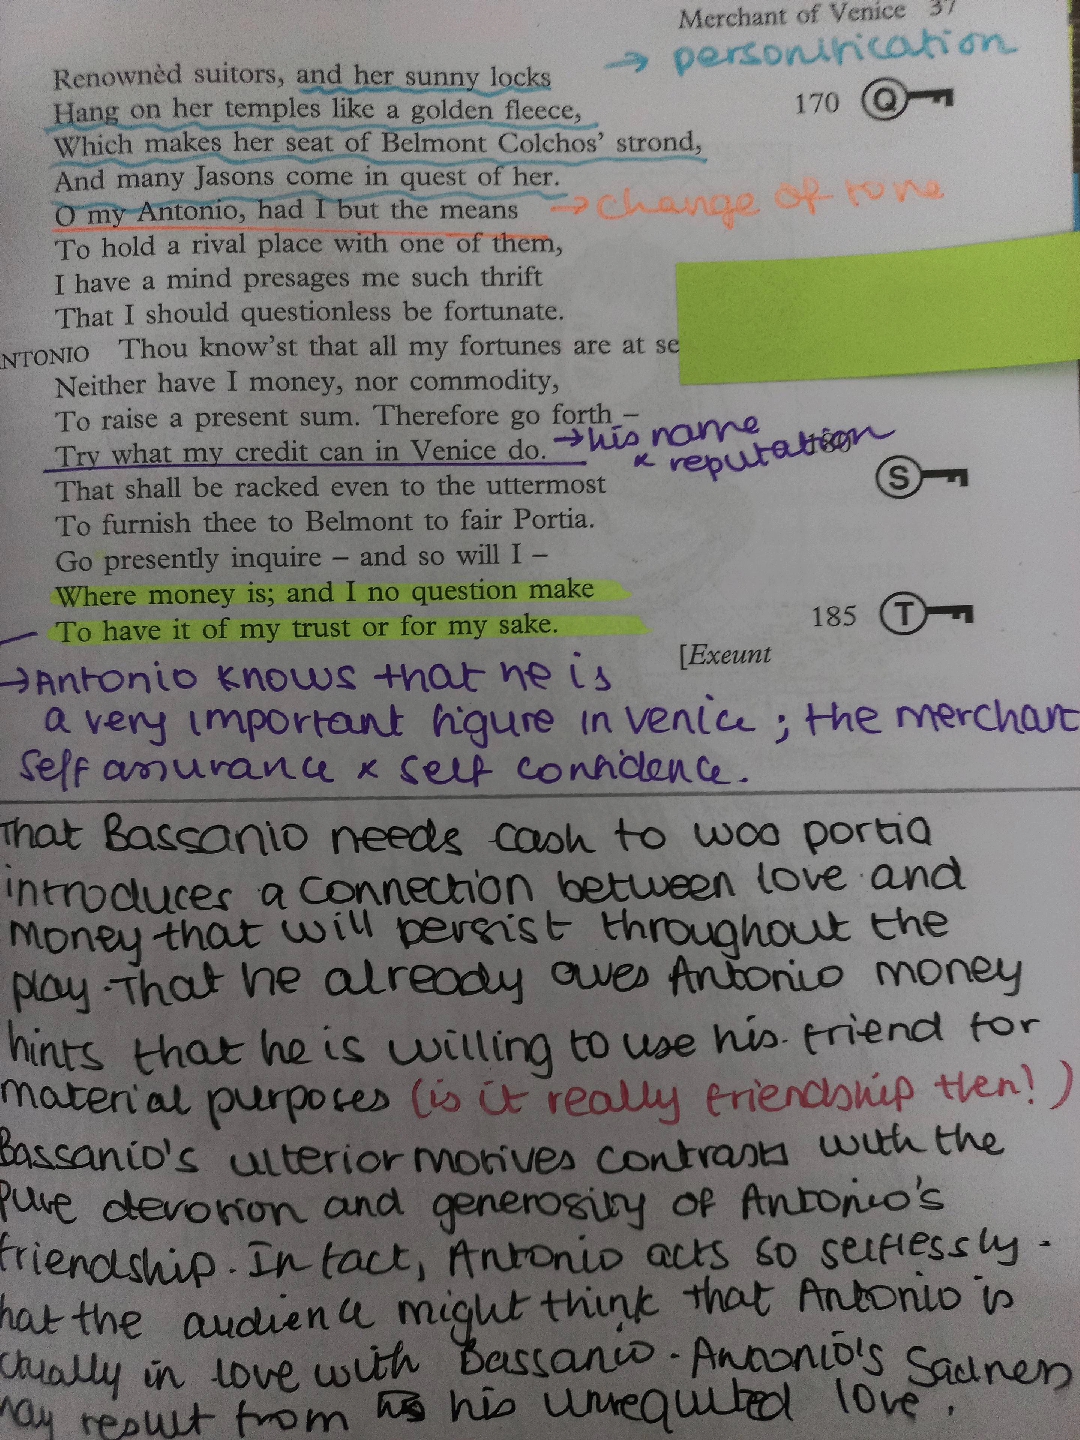 Merchant of Venice 37
→ personification
Renownèd suitors, and her sunny locks
Hang on her temples like a golden fleece, 170 Q
Which makes her seat of Belmont Colchos' strond,
And many Jasons come in quest of her.
O my Antonio, had I but the means → change of tone
To hold a rival place with one of them,
I have a mind presages me such thrift
That I should questionless be fortunate.
NTONIO Thou know'st that all my fortunes are at se
Neither have I money, nor commodity,
To raise a present sum. Therefore go forth –
Try what my credit can in Venice do. → his name
x reputation
S
That shall be racked even to the uttermost
To furnish thee to Belmont to fair Portia.
Go presently inquire – and so will I –
Where money is; and I no question make
To have it of my trust or for my sake. 185 T
[Exeunt
→ Antonio knows that he is
a very important figure in venice ; the merchant
self assurance x self confidence.
That Bassanio needs cash to woo portia
introduces a connection between love and
money that will persist throughout the
play. That he already owes Antonio money
hints that he is willing to use his friend for
material purposes (is it really friendship then!)
Bassanio's ulterior motives contrasts with the
pure devotion and generosity of Antonio's
friendship. In fact, Antonio acts so selflessly.
hat the audience might think that Antonio is
ctually in love with Bassanio. Antonio's Sadness
may result from his unrequited love.